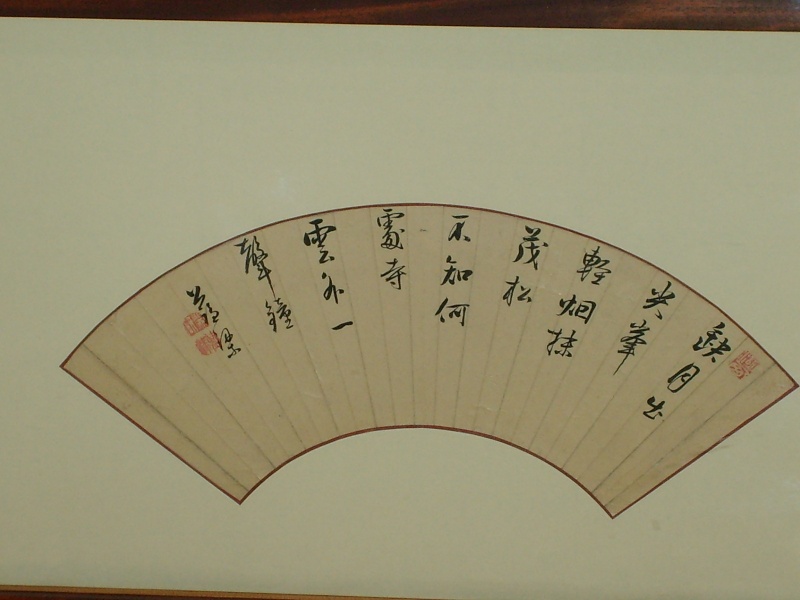 缺月出
尖峯
輕烟抹
茂松
不知何
處寺
雲外一
聲鐘